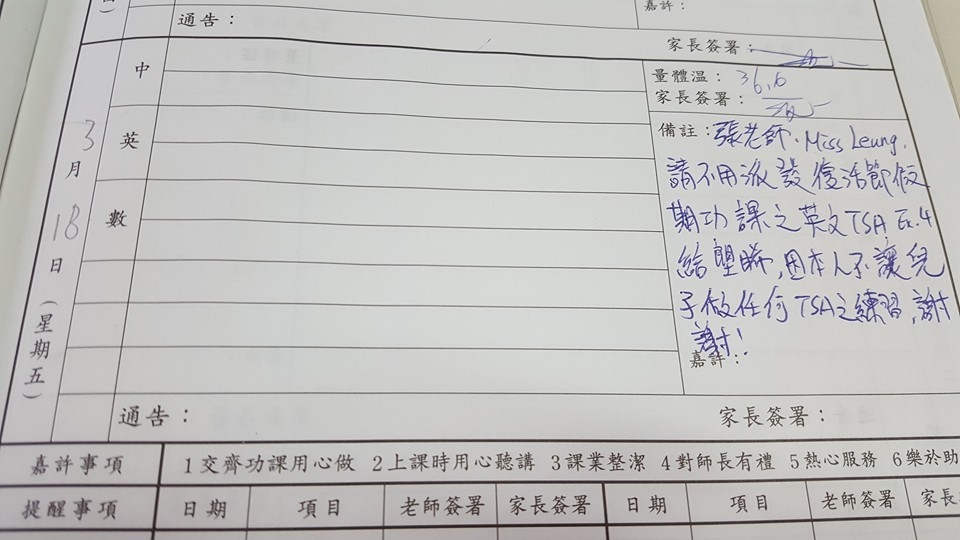 嘉許：
通告：
家長簽署：
中
英
數
3
月
18
日
(星期五)
量體溫：36.6
家長簽署：
備註：張老師、Miss Leung,
請不用派發復活節假
期功課之英文TSA Ex.4
給塱晞,因本人不讓兒
子做任何TSA之練習,謝
謝!
嘉許：
通告：
家長簽署：
嘉許事項 1交齊功課用心做 2上課時用心聽講 3課業整潔 4對師長有禮 5熱心服務 6樂於助
提醒事項 日期 項目 老師簽署 家長簽署 日期 項目 老師簽署 家長